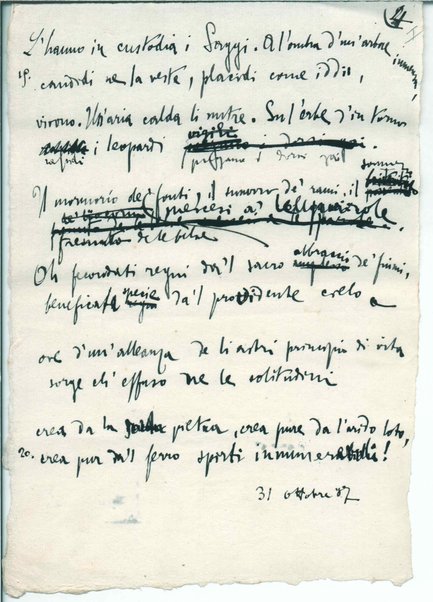 24
L'hanno in custodia i Saggi. A l'ombra d'un'arbore immensi,
19. candidi ne la veste, placidi come iddii,
vivono. Un'aria calda li nutre. Su l'erbe d'in torno
vigili
i leopardi
piegano i dorsi gai
Il mormorio de' fonti, il sussurro de' rami, il
fremito de le belve
Oh fecondati regni da'l sacro abbraccio de' fiumi,
beneficate specie da'l provvidente cielo
ove d'un'alleanza de li astri principio di vita
sorge ed effuso ne le solitudini
crea da la pietra, crea pure da l'arido loto,
20. crea pur da'l ferro spirti innumerabili!
31 ottobre '87